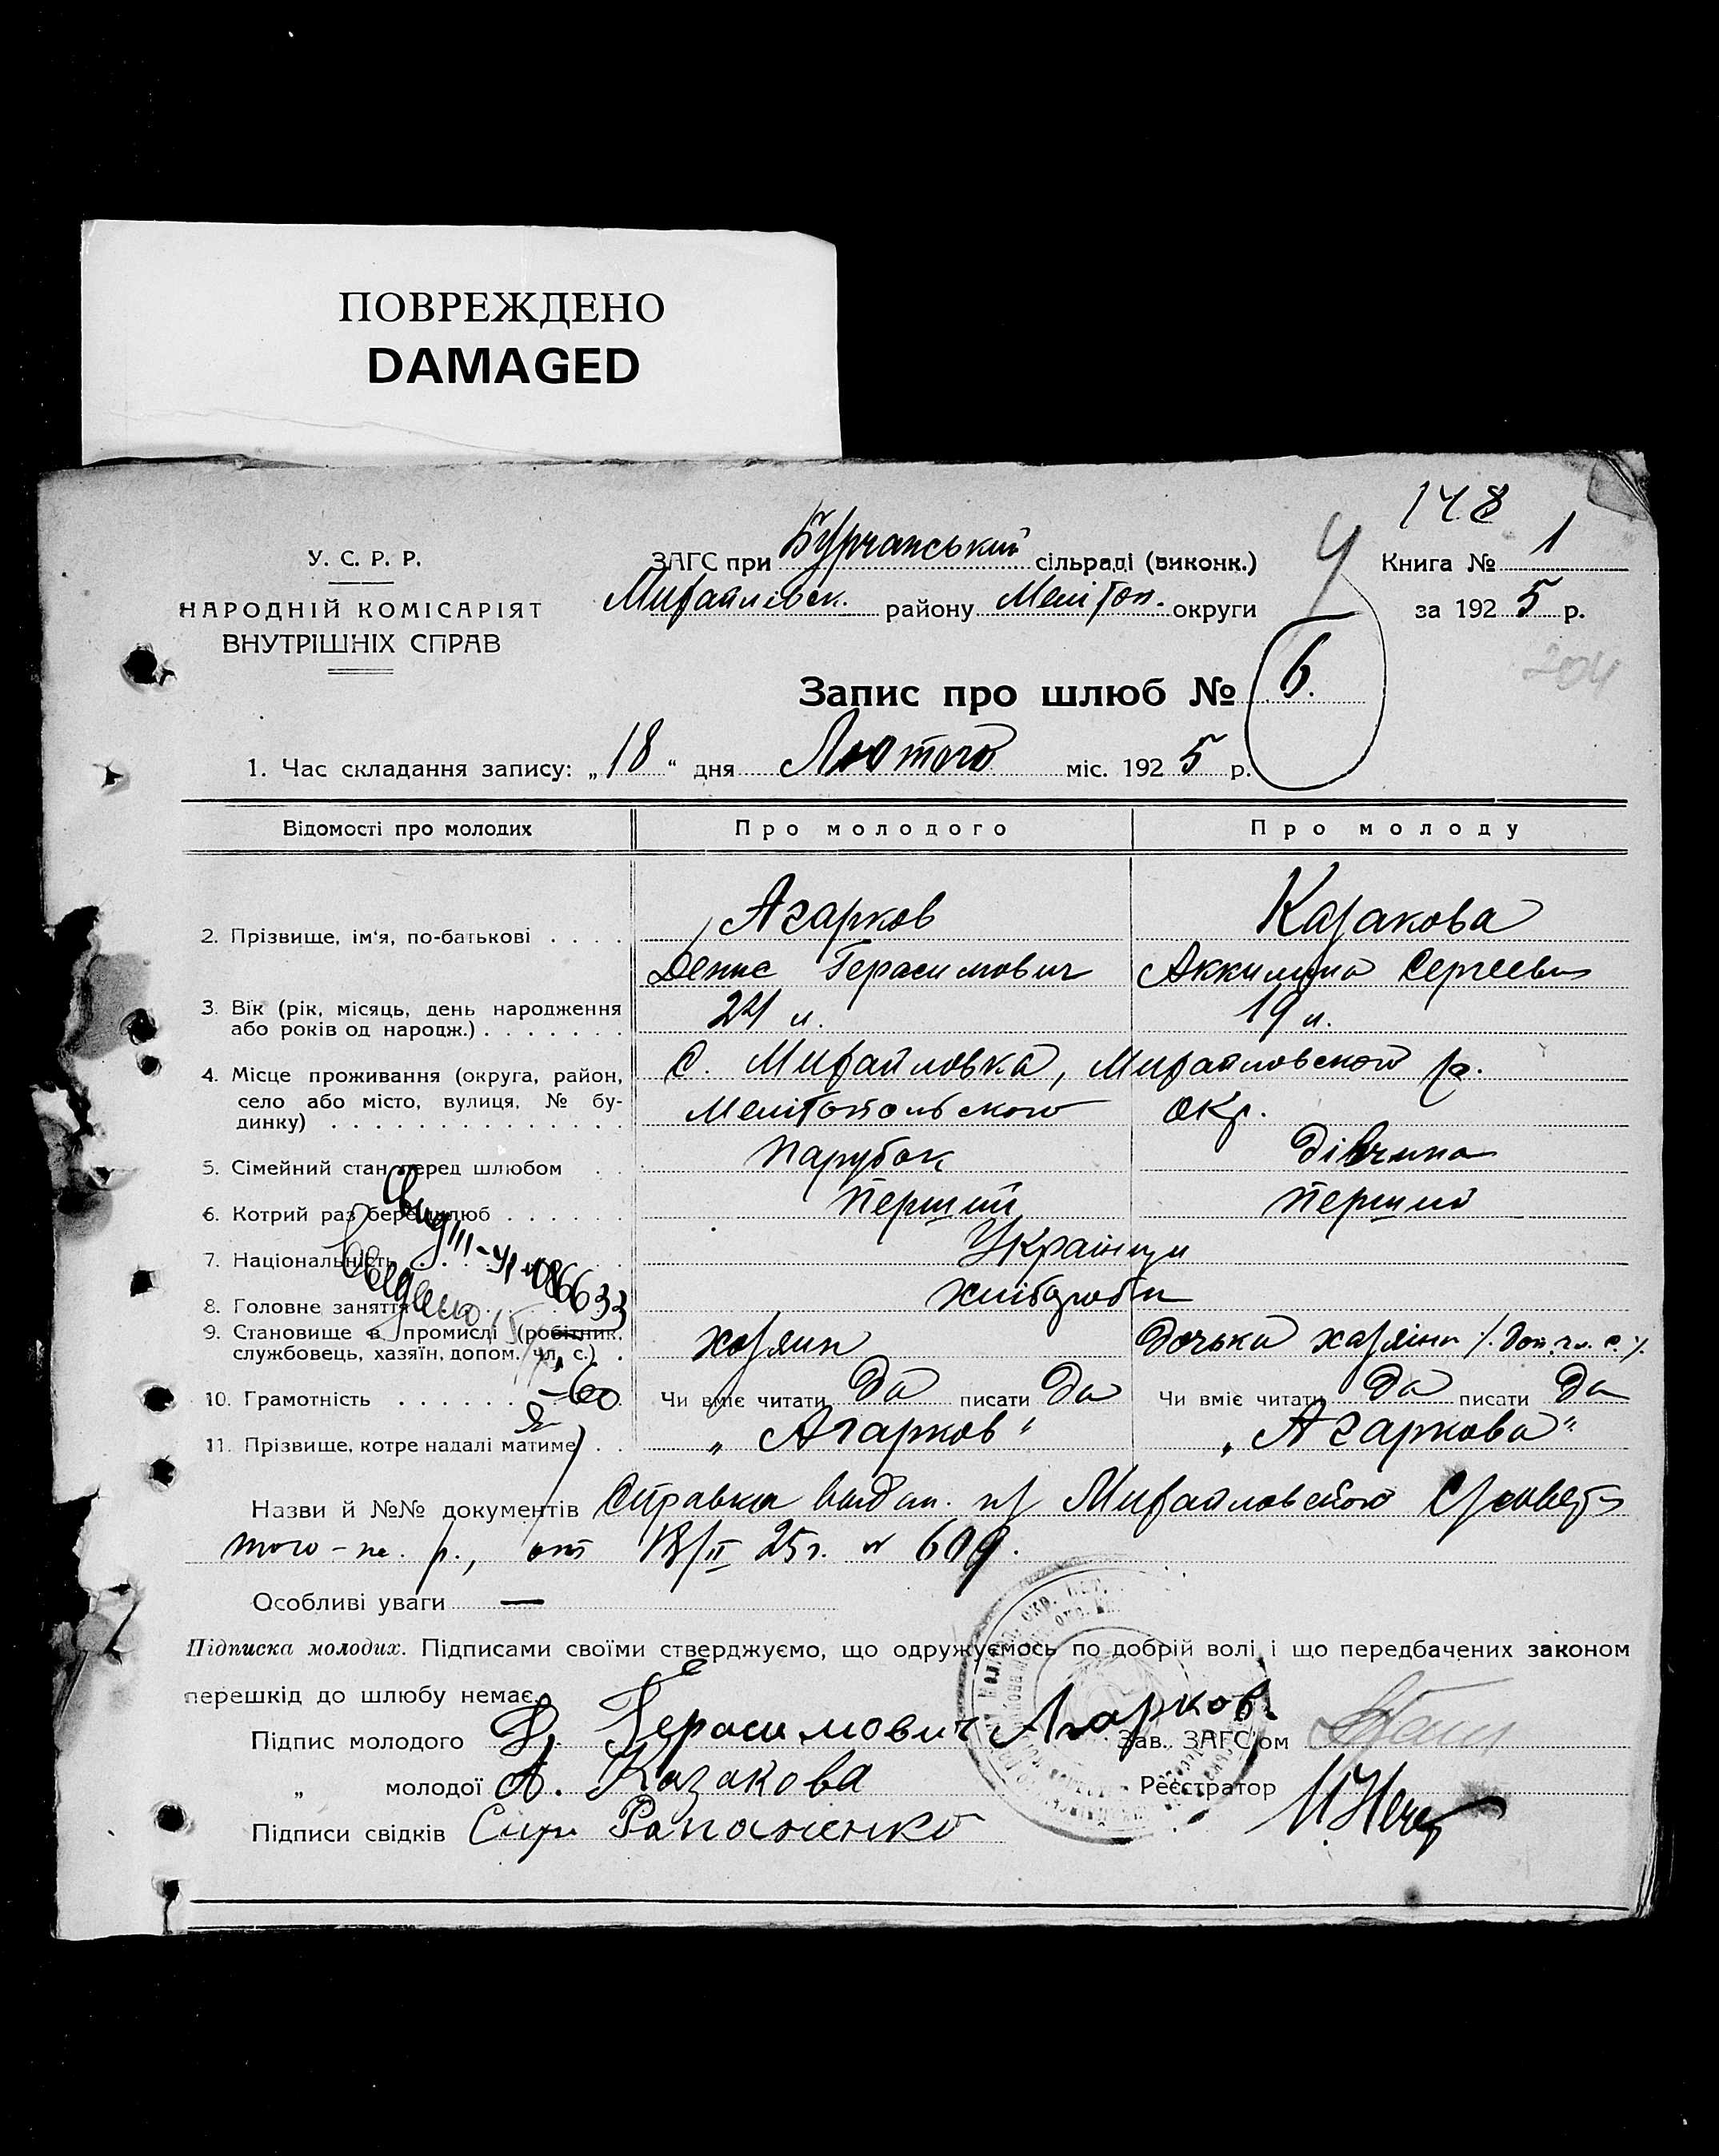 ПОВРЕЖДЕНО
DAMAGED
148
У. С. Р. Р.
НАРОДНІЙ КОМІСАРІЯТ
ВНУТРІШНІХ СПРАВ
ЗАГС при Бурчанський сільраді (виконк.)
Михайлівск. району Мелітоп. округи
Ч
Книга № 1
за 1925 р.
204
Запис про шлюб № 6.
1. Час складання запису: „18“ дня Лютого міс. 1925 р.
Відомості про молодих Про молодого Про молоду
2. Прізвище, ім'я, по-батькові . . . . Агарков Казакова
Денис Герасимович Аккилина Сергеевн
3. Вік (рік, місяць, день народження
або років од народж.) . . . . . . . 24 л. 19 л.
4. Місце проживання (округа, район,
село або місто, вулиця, № бу-
динку) . . . . . . . . . . . . . .
С. Михайловка, Михайловского р.
Мелітопольского окр.
5. Сімейний стан перед шлюбом . . Парубок Дівчина
6. Котрий раз бере шлюб . . . . . . Перший Перший
7. Національність . . . . . Українци
8. Головне заняття . . . . . Хлібороби
9. Становище в промислі (робітник,
службовець, хазяїн, допом. чл. с.) . хозяин дочька хазяіна /. доп. чл. с. /.
10. Грамотність . . . . . . Чи вміє читати Да писати Да Чи вміє читати Да писати Да
11. Прізвище, котре надалі матиме . . „Агарков“ „Агаркова“
III-УР 086633
Назви й №№ документів Справка выдан. Михайловской
того-же р., от 18/II 25 г. № 609.
Особливі уваги —
Підписка молодих. Підписами своїми стверджуємо, що одружуємось по добрій волі і що передбачених законом
перешкід до шлюбу немає.
Підпис молодого Д. Герасимович Агарков
Зав. ЗАГС'ом
„ молодої А. Казакова
Реєстратор
Підписи свідків